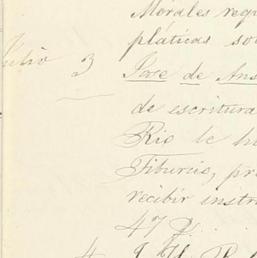 Morales requ
pláticas so
Julio 3 Jose de Ans
de escritura
Rio le h
Tiburcio, pr
recibir instr
47 y.
4